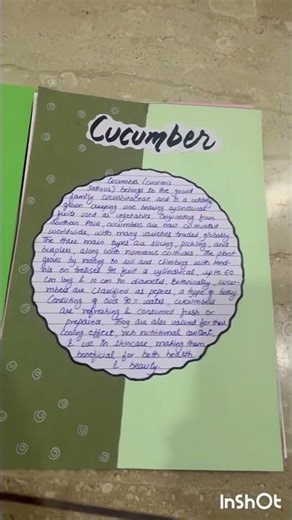 Cucumber
Cucumber (Cucumis
Sativus) belongs to the gourd
family Cucurbitaceae and is a widely
grown creeping vine bearing cylindrical
fruits used as vegetables. Originating from
Southern Asia, cucumbers are now cultivated
worldwide, with many varieties traded globally.
The three main types are slicing, pickling, and
burpless, along with numerous cultivars. The plant
grows by rooting to soil and climbing with
on trellises. The fruit is cylindrical, up to 60
cm long & 10 cm in diameter. Botanically,
are classified as pepoes, a type of berry.
Consisting of over 90% water, cucumbers
are refreshing & consumed fresh or
prepared. They are also valued for their
cooling effect, rich nutritional content
& use in skincare, making them
beneficial for both health
& beauty.
InShOt